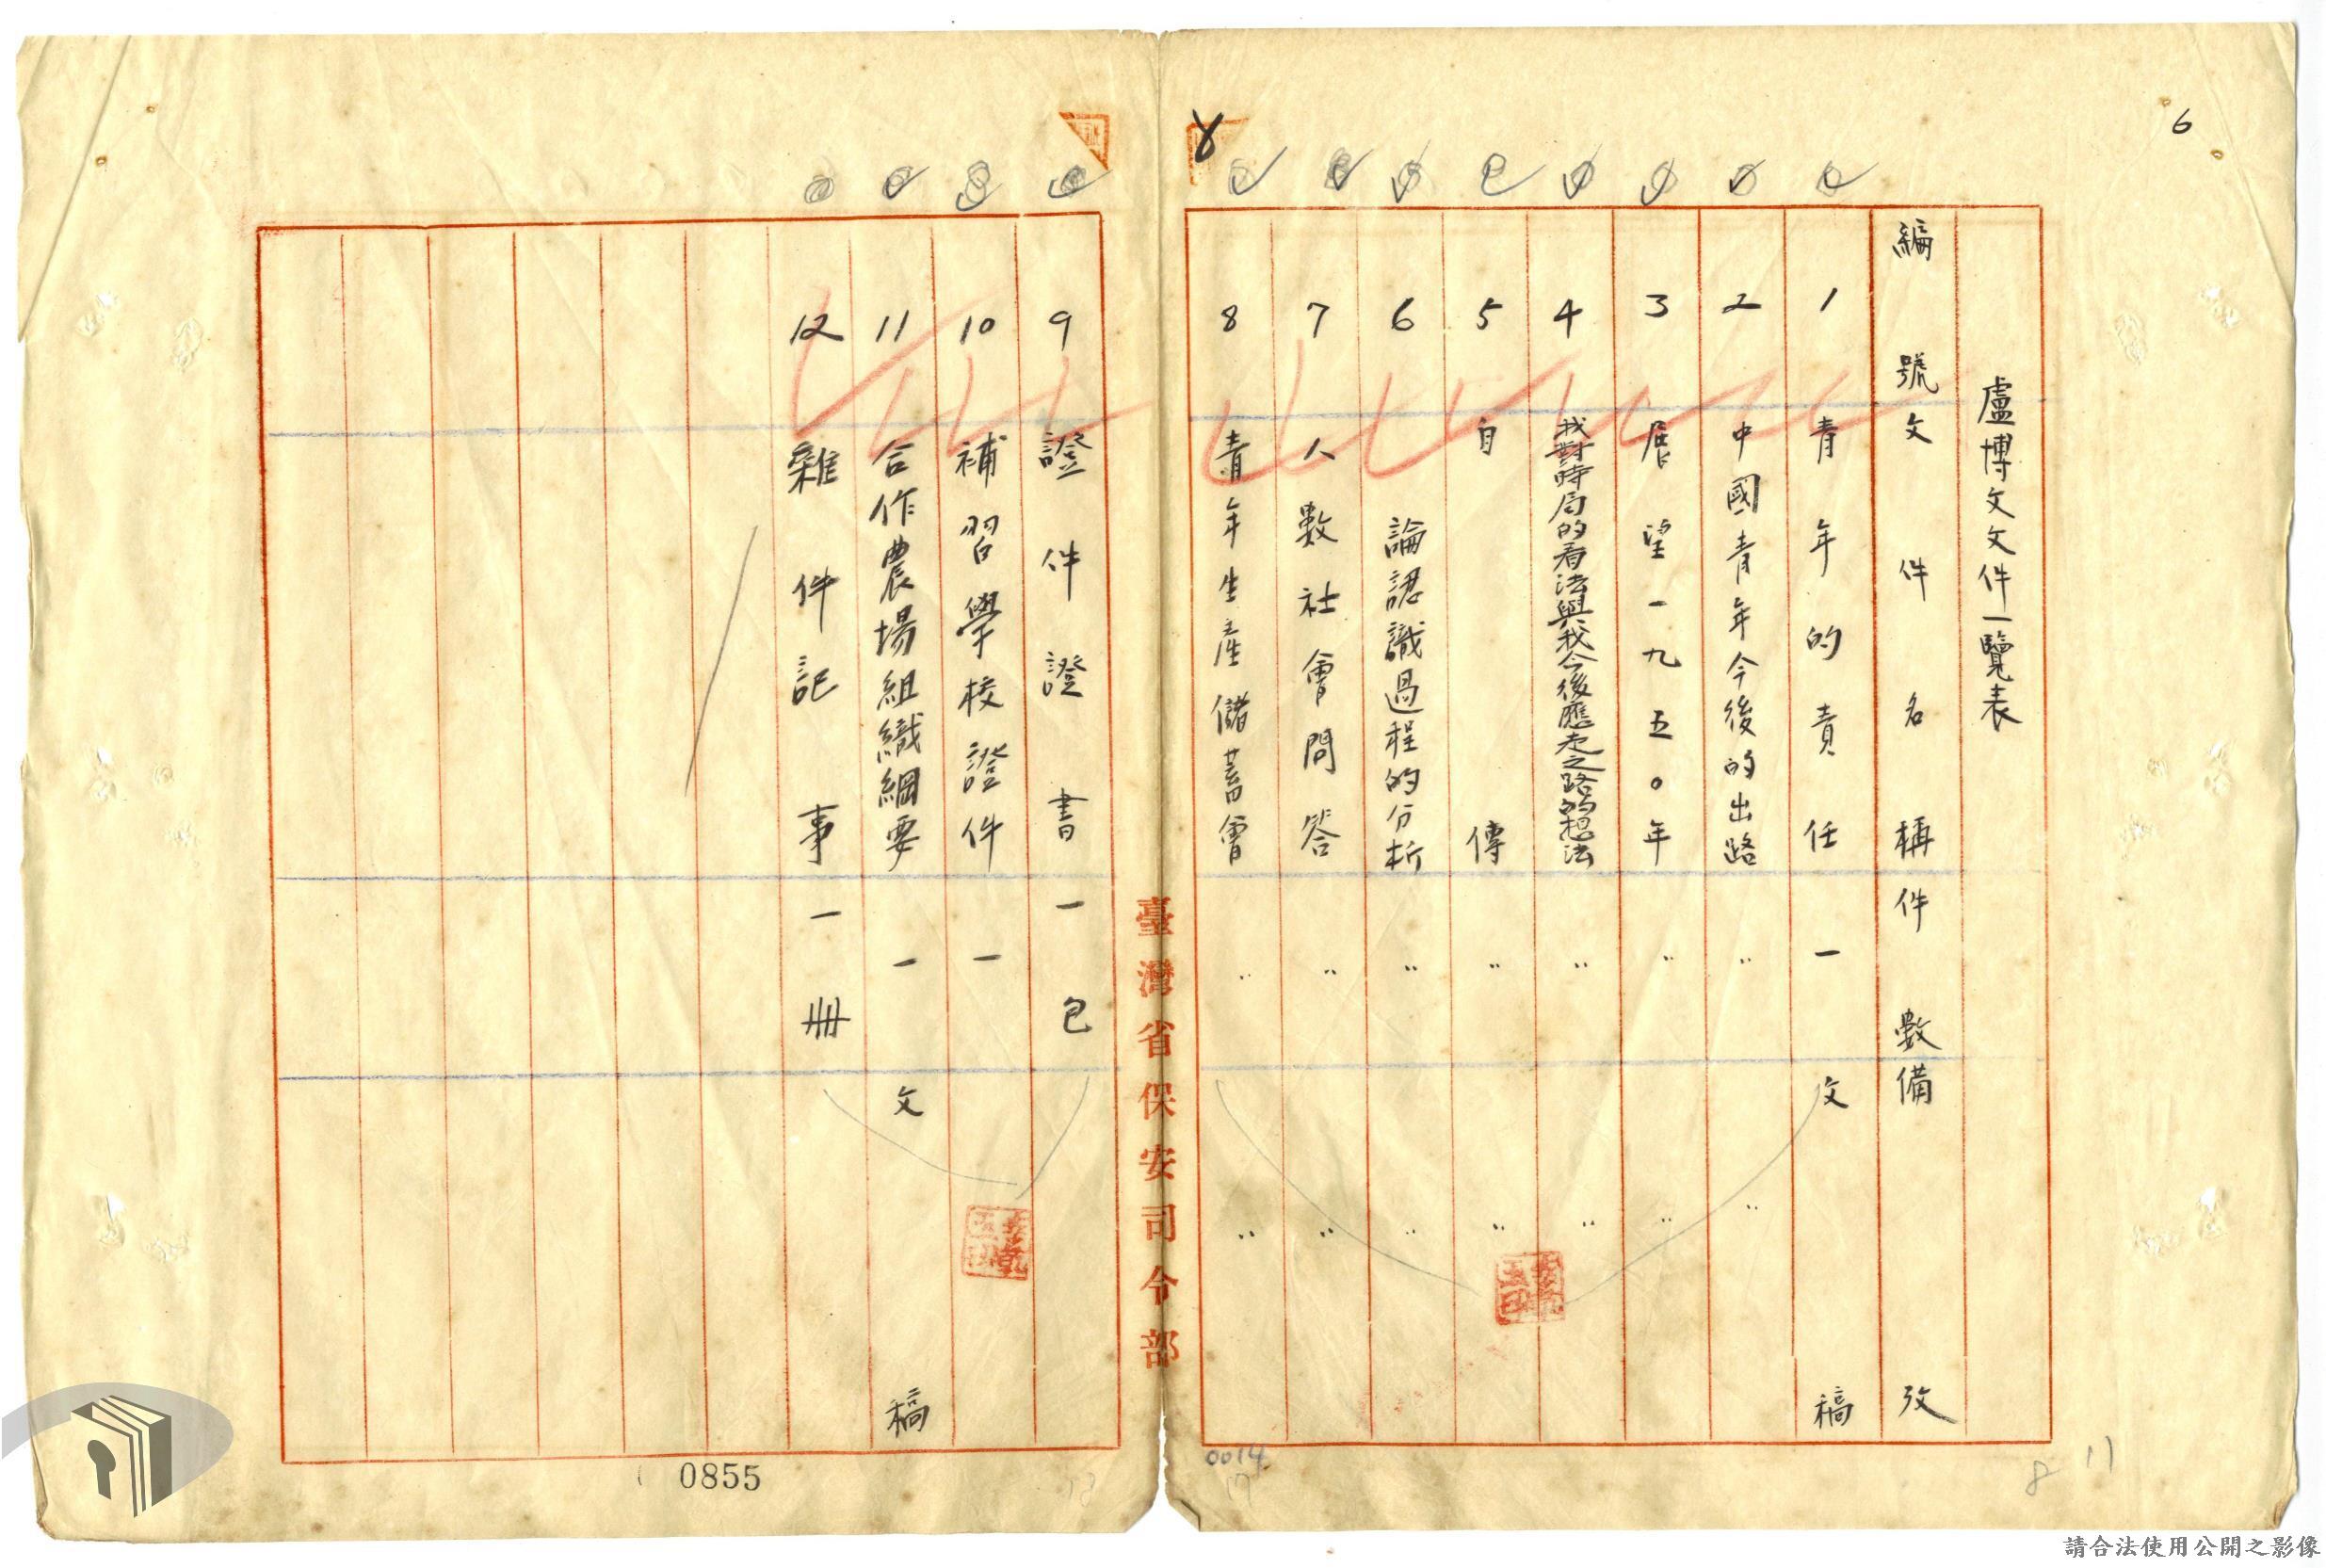 6
盧博文文件一覽表
編號 文件名稱 件數 備攷
1 青年的責任 一 文稿
2 中國青年今後的出路 〃 〃
3 展望一九五〇年 〃 〃
4 我對時局的看法與我今後應走之路的想法 〃 〃
5 自傳 〃 〃
6 論認識過程的分析 〃 〃
7 人數社會問答 〃 〃
8 青年生產儲蓄會 〃 〃
臺灣省保安司令部
9 證件證書 一包
10 補習學校證件 一
11 合作農場組織綱要 一 文稿
12 雜件記事 一冊
0014
17
8
11
0855
請合法使用公開之影像